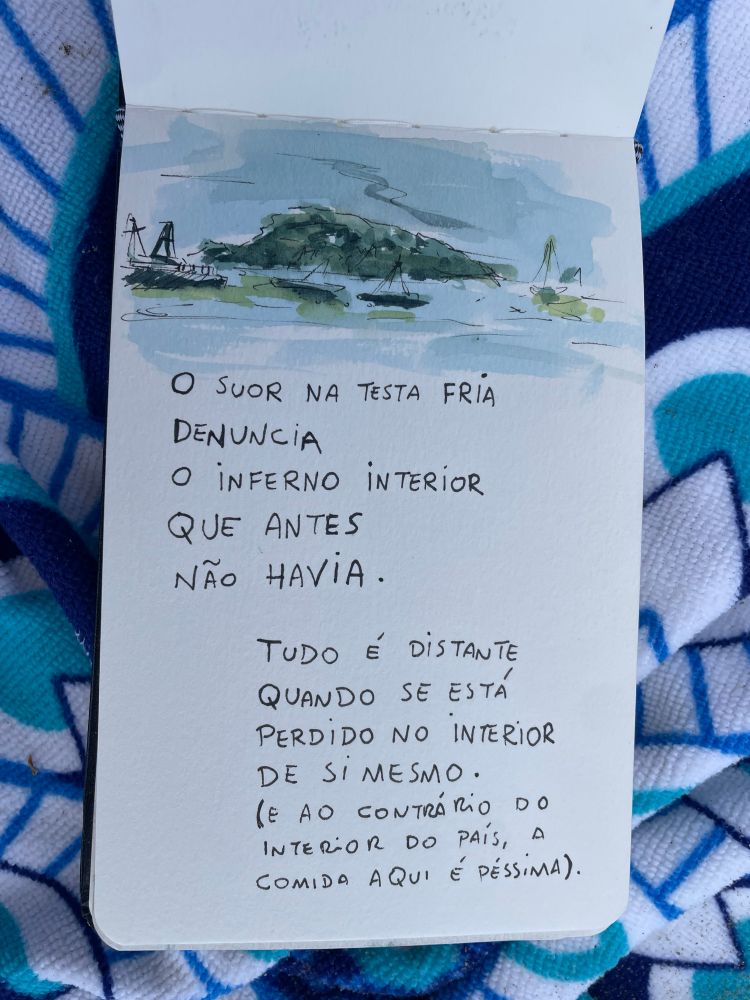 O SUOR NA TESTA FRIA
DENUNCIA
O INFERNO INTERIOR
QUE ANTES
NÃO HAVIA.
TUDO É DISTANTE
QUANDO SE ESTÁ
PERDIDO NO INTERIOR
DE SI MESMO.
(E AO CONTRÁRIO DO
INTERIOR DO PAÍS, A
COMIDA AQUI É PÉSSIMA).